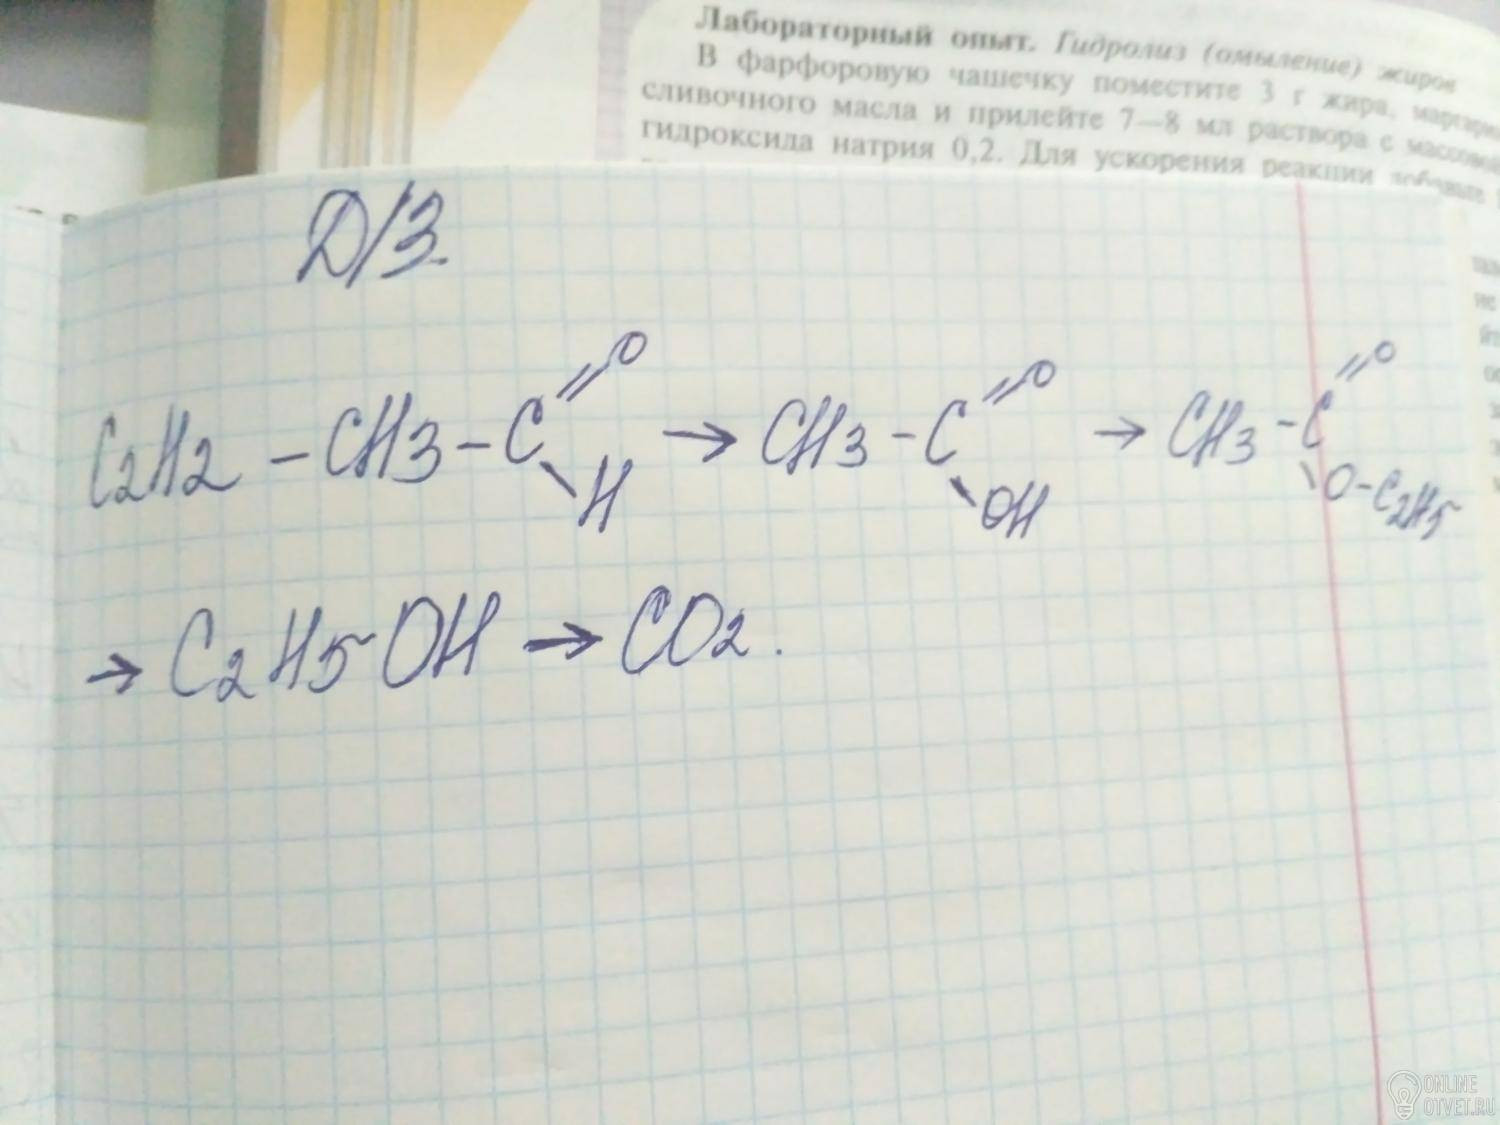 Лабораторный опыт. Гидролиз (омыление) жиров
В фарфоровую чашечку поместите 3 г жира,
сливочного масла и прилейте 7—8 мл раствора с
гидроксида натрия 0,2. Для ускорения реакции
Д/З.
C2H2 – CH3 – C =O –H → CH3 – C =O –OH → CH3 – C =O –O–C2H5
→ C2H5OH → CO2.
ONLINE
OTVET.RU